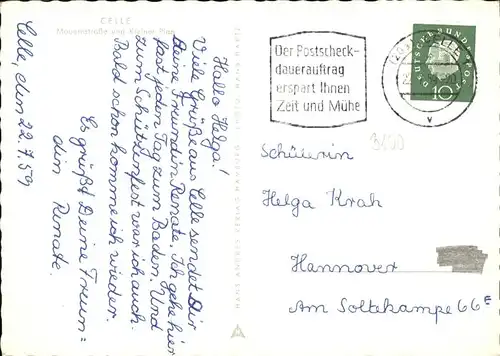 CELLE
Mauernstraße und Kleiner Plan
Celle, den 22.7.59
Hallo Helga!
Viele Grüße aus Celle sendet Dir
Deine Freundin Renate. Ich gehe hier
fast jeden Tag zum Baden. Und
zum Schützenfest war ich auch.
Bald schon komme ich wieder.
Es grüßt Deine Freun=
din Renate.
HANS ANDRES VERLAG HAMBURG
Der Postscheck-
dauerauftrag
erspart Ihnen
Zeit und Mühe
CELLE
DEUTSCHE BUNDESPOST
10
3100
Schülerin
Helga Krah
Hannover
Am Soltekampe 66E